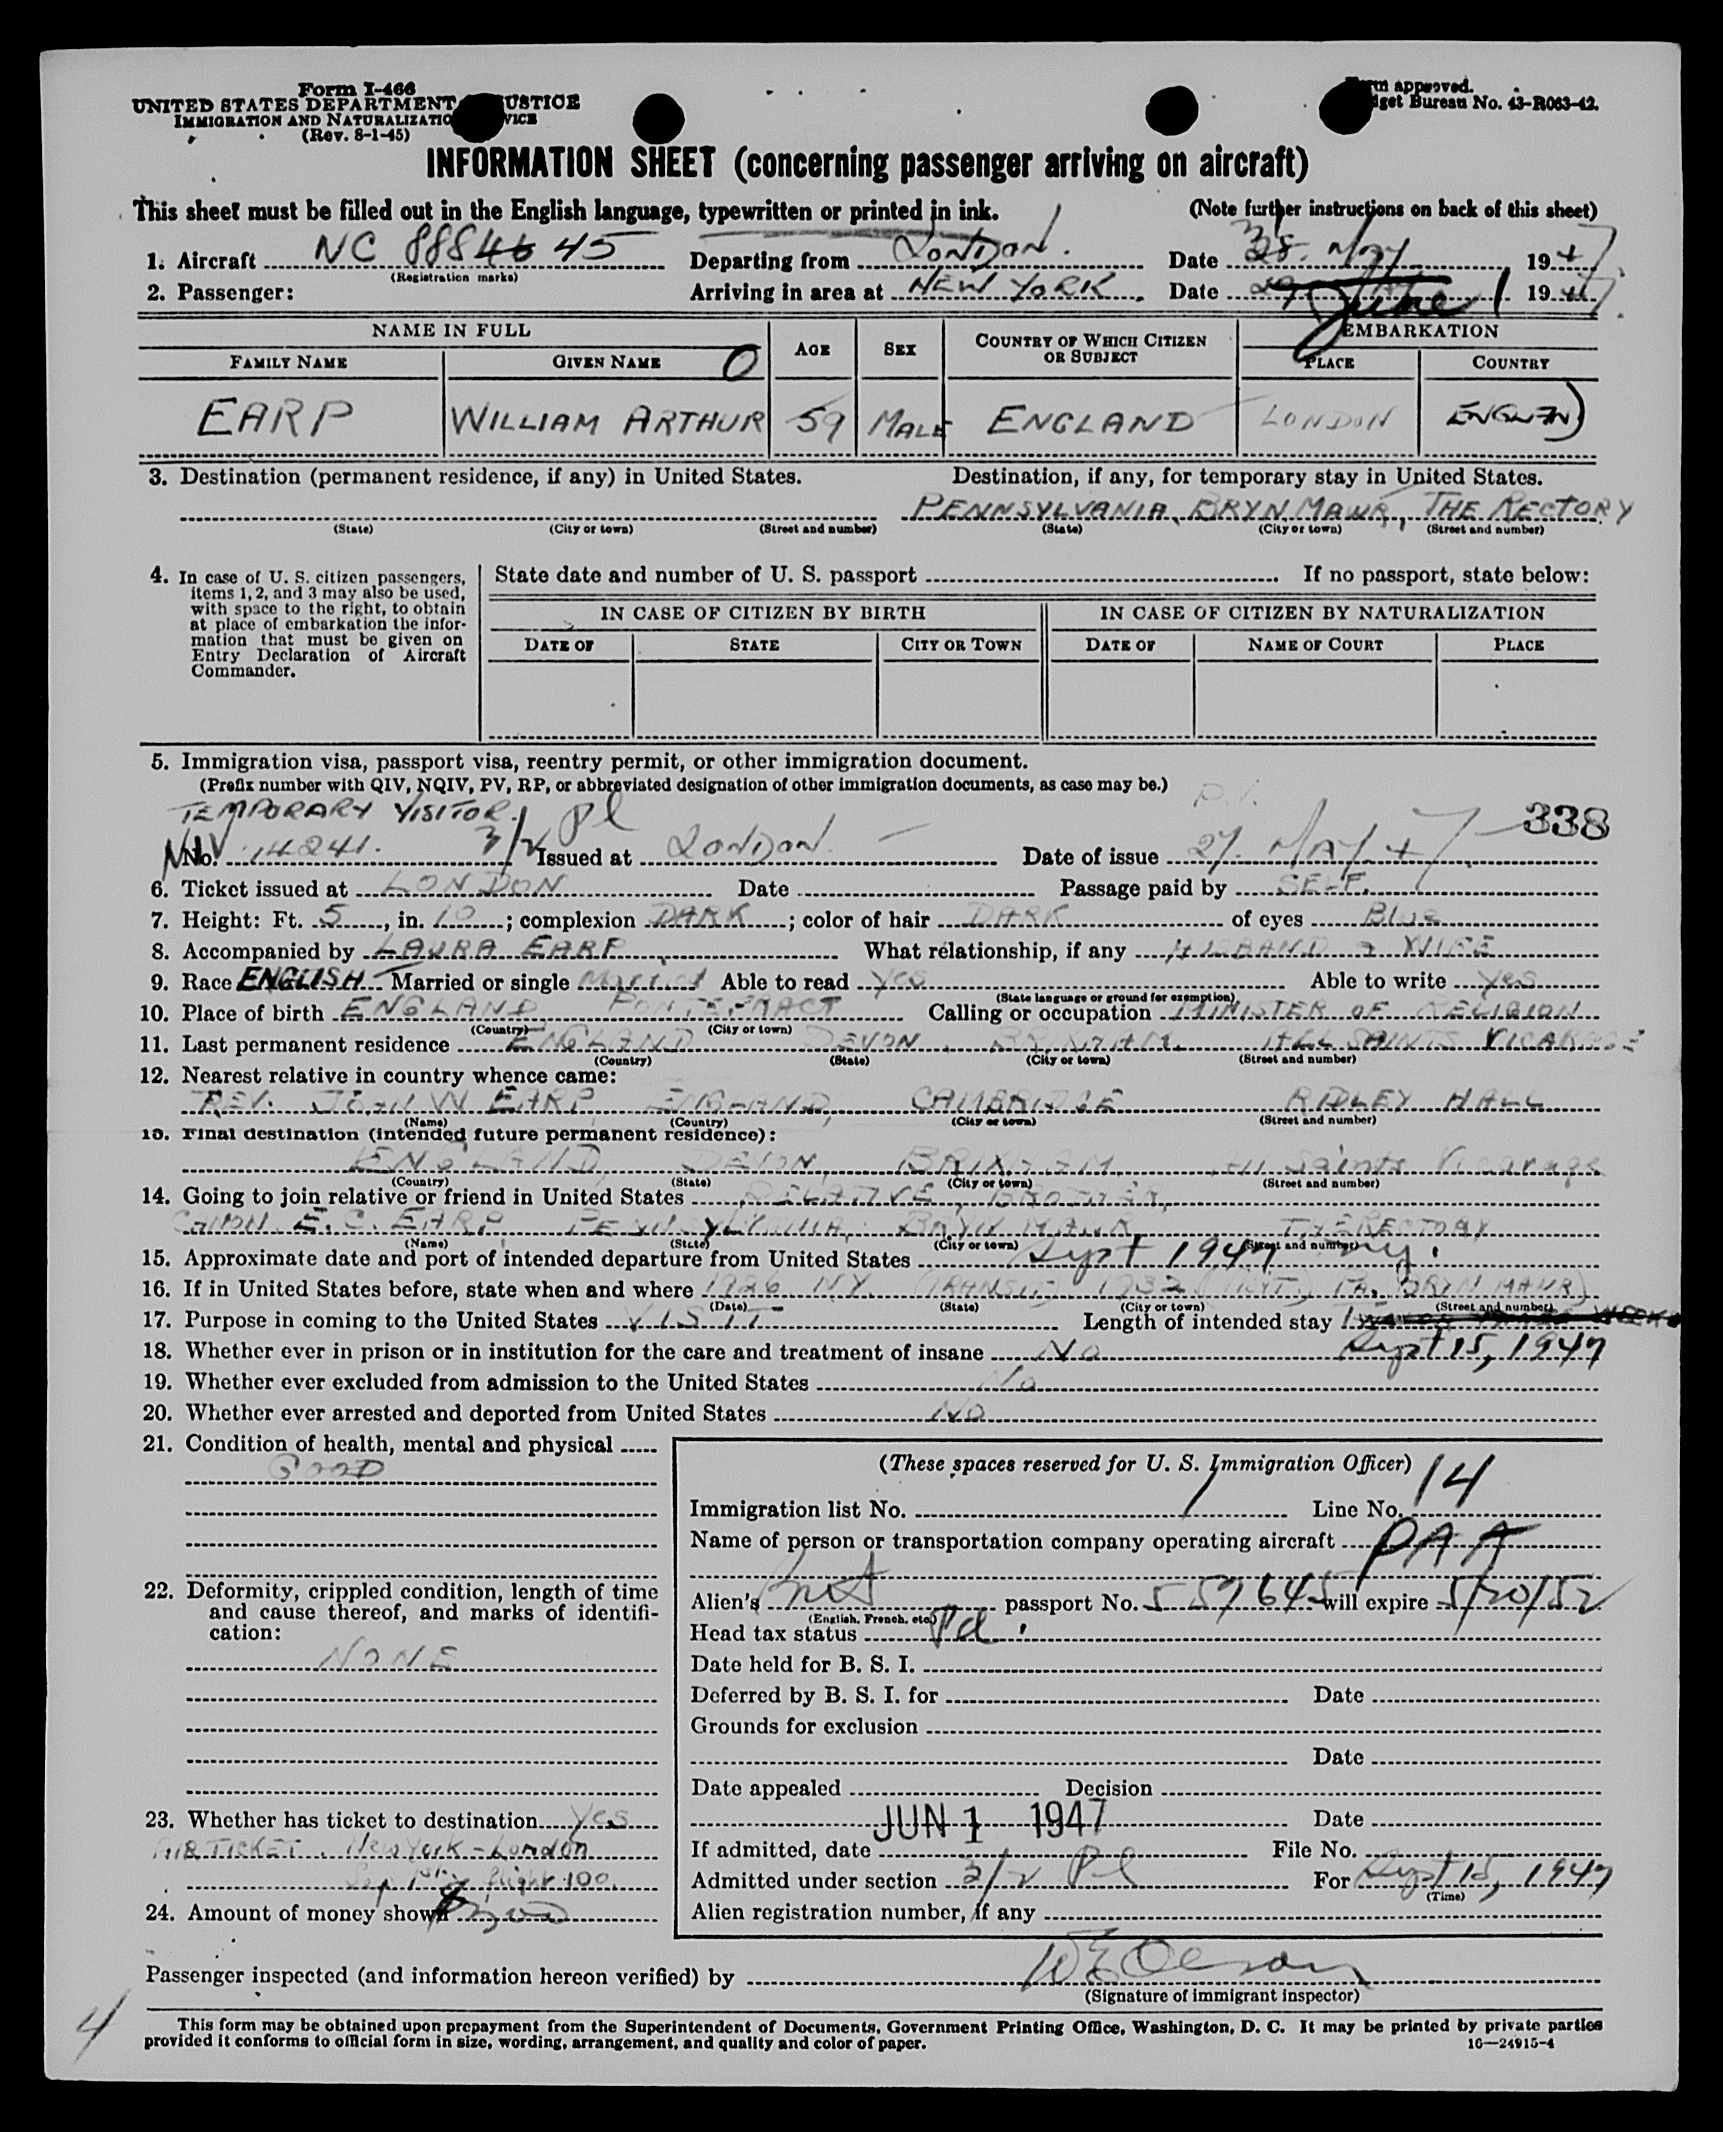 Form I-466
UNITED STATES DEPARTMENT JUSTICE
IMMIGRATION AND NATURALIZATION
(Rev. 8-1-45)
approved.
Bureau No. 43-R063-42.
INFORMATION SHEET (concerning passenger arriving on aircraft)
This sheet must be filled out in the English language, typewritten or printed in ink. (Note further instructions on back of this sheet)
1. Aircraft NC 45 Departing from LONDON. Date May 1947.
(Registration marks)
2. Passenger: Arriving in area at NEW YORK. Date 29 June 1 1947.
NAME IN FULL AGE SEX COUNTRY OF WHICH CITIZEN OR SUBJECT EMBARKATION
FAMILY NAME GIVEN NAME PLACE COUNTRY
EARP WILLIAM ARTHUR 59 MALE ENGLAND LONDON ENGLAND
3. Destination (permanent residence, if any) in United States. Destination, if any, for temporary stay in United States.
PENNSYLVANIA, BRYN MAWR, THE RECTORY
(State) (City or town) (Street and number) (State) (City or town) (Street and number)
4. In case of U. S. citizen passengers, items 1, 2, and 3 may also be used, with space to the right, to obtain at place of embarkation the information that must be given on Entry Declaration of Aircraft Commander.
State date and number of U. S. passport If no passport, state below:
IN CASE OF CITIZEN BY BIRTH IN CASE OF CITIZEN BY NATURALIZATION
DATE OF STATE CITY OR TOWN DATE OF NAME OF COURT PLACE
5. Immigration visa, passport visa, reentry permit, or other immigration document.
(Prefix number with QIV, NQIV, PV, RP, or abbreviated designation of other immigration documents, as case may be.)
TEMPORARY VISITOR. 3/2 Pl 338
No. 14241. Issued at LONDON Date of issue 27 MAY 47
6. Ticket issued at LONDON Date Passage paid by SELF.
7. Height: Ft. 5, in. 10; complexion DARK; color of hair DARK of eyes Blue
8. Accompanied by LAURA EARP What relationship, if any HUSBAND & WIFE
9. Race ENGLISH Married or single Married Able to read Yes Able to write Yes
(State language or ground for exemption)
10. Place of birth ENGLAND PONTEFRACT Calling or occupation MINISTER OF RELIGION
(Country) (City or town)
11. Last permanent residence ENGLAND DEVON BRIXHAM ALL SAINTS VICARAGE
(Country) (State) (City or town) (Street and number)
12. Nearest relative in country whence came:
REV. JOHN W EARP ENGLAND, CAMBRIDGE RIDLEY HALL
(Name) (Country) (City or town) (Street and number)
13. Final destination (intended future permanent residence):
ENGLAND DEVON, BRIXHAM, All Saints Vicarage
(Country) (State) (City or town) (Street and number)
14. Going to join relative or friend in United States RELATIVE, BROTHER,
CANON E. C. EARP, PENNSYLVANIA, BRYN MAWR THE RECTORY
(Name) (State) (City or town) (Street and number)
15. Approximate date and port of intended departure from United States Sept 1947 NY.
16. If in United States before, state when and where 1926 NY (TRANSIT) 1932 (VISIT) PA. BRYN MAWR)
(Date) (State) (City or town) (Street and number)
17. Purpose in coming to the United States VISIT Length of intended stay
18. Whether ever in prison or in institution for the care and treatment of insane No Sept 15, 1947
19. Whether ever excluded from admission to the United States No
20. Whether ever arrested and deported from United States No
21. Condition of health, mental and physical
GOOD
22. Deformity, crippled condition, length of time and cause thereof, and marks of identification:
NONE
23. Whether has ticket to destination Yes
AIR TICKET. New York - London
Flight 100.
24. Amount of money shown
(These spaces reserved for U. S. Immigration Officer)
Immigration list No. 1 Line No. 14
Name of person or transportation company operating aircraft PAA
Alien's passport No. 559645 will expire 5/20/52
(English, French, etc.)
Head tax status Pd.
Date held for B. S. I.
Deferred by B. S. I. for Date
Grounds for exclusion
Date
Date appealed Decision
Date
JUN 1 1947
If admitted, date File No.
Admitted under section 3/2 Pl For Sept 15, 1947
(Time)
Alien registration number, if any
Passenger inspected (and information hereon verified) by W E Olson
(Signature of immigrant inspector)
4
This form may be obtained upon prepayment from the Superintendent of Documents, Government Printing Office, Washington, D. C. It may be printed by private parties
provided it conforms to official form in size, wording, arrangement, and quality and color of paper. 16—24915-4